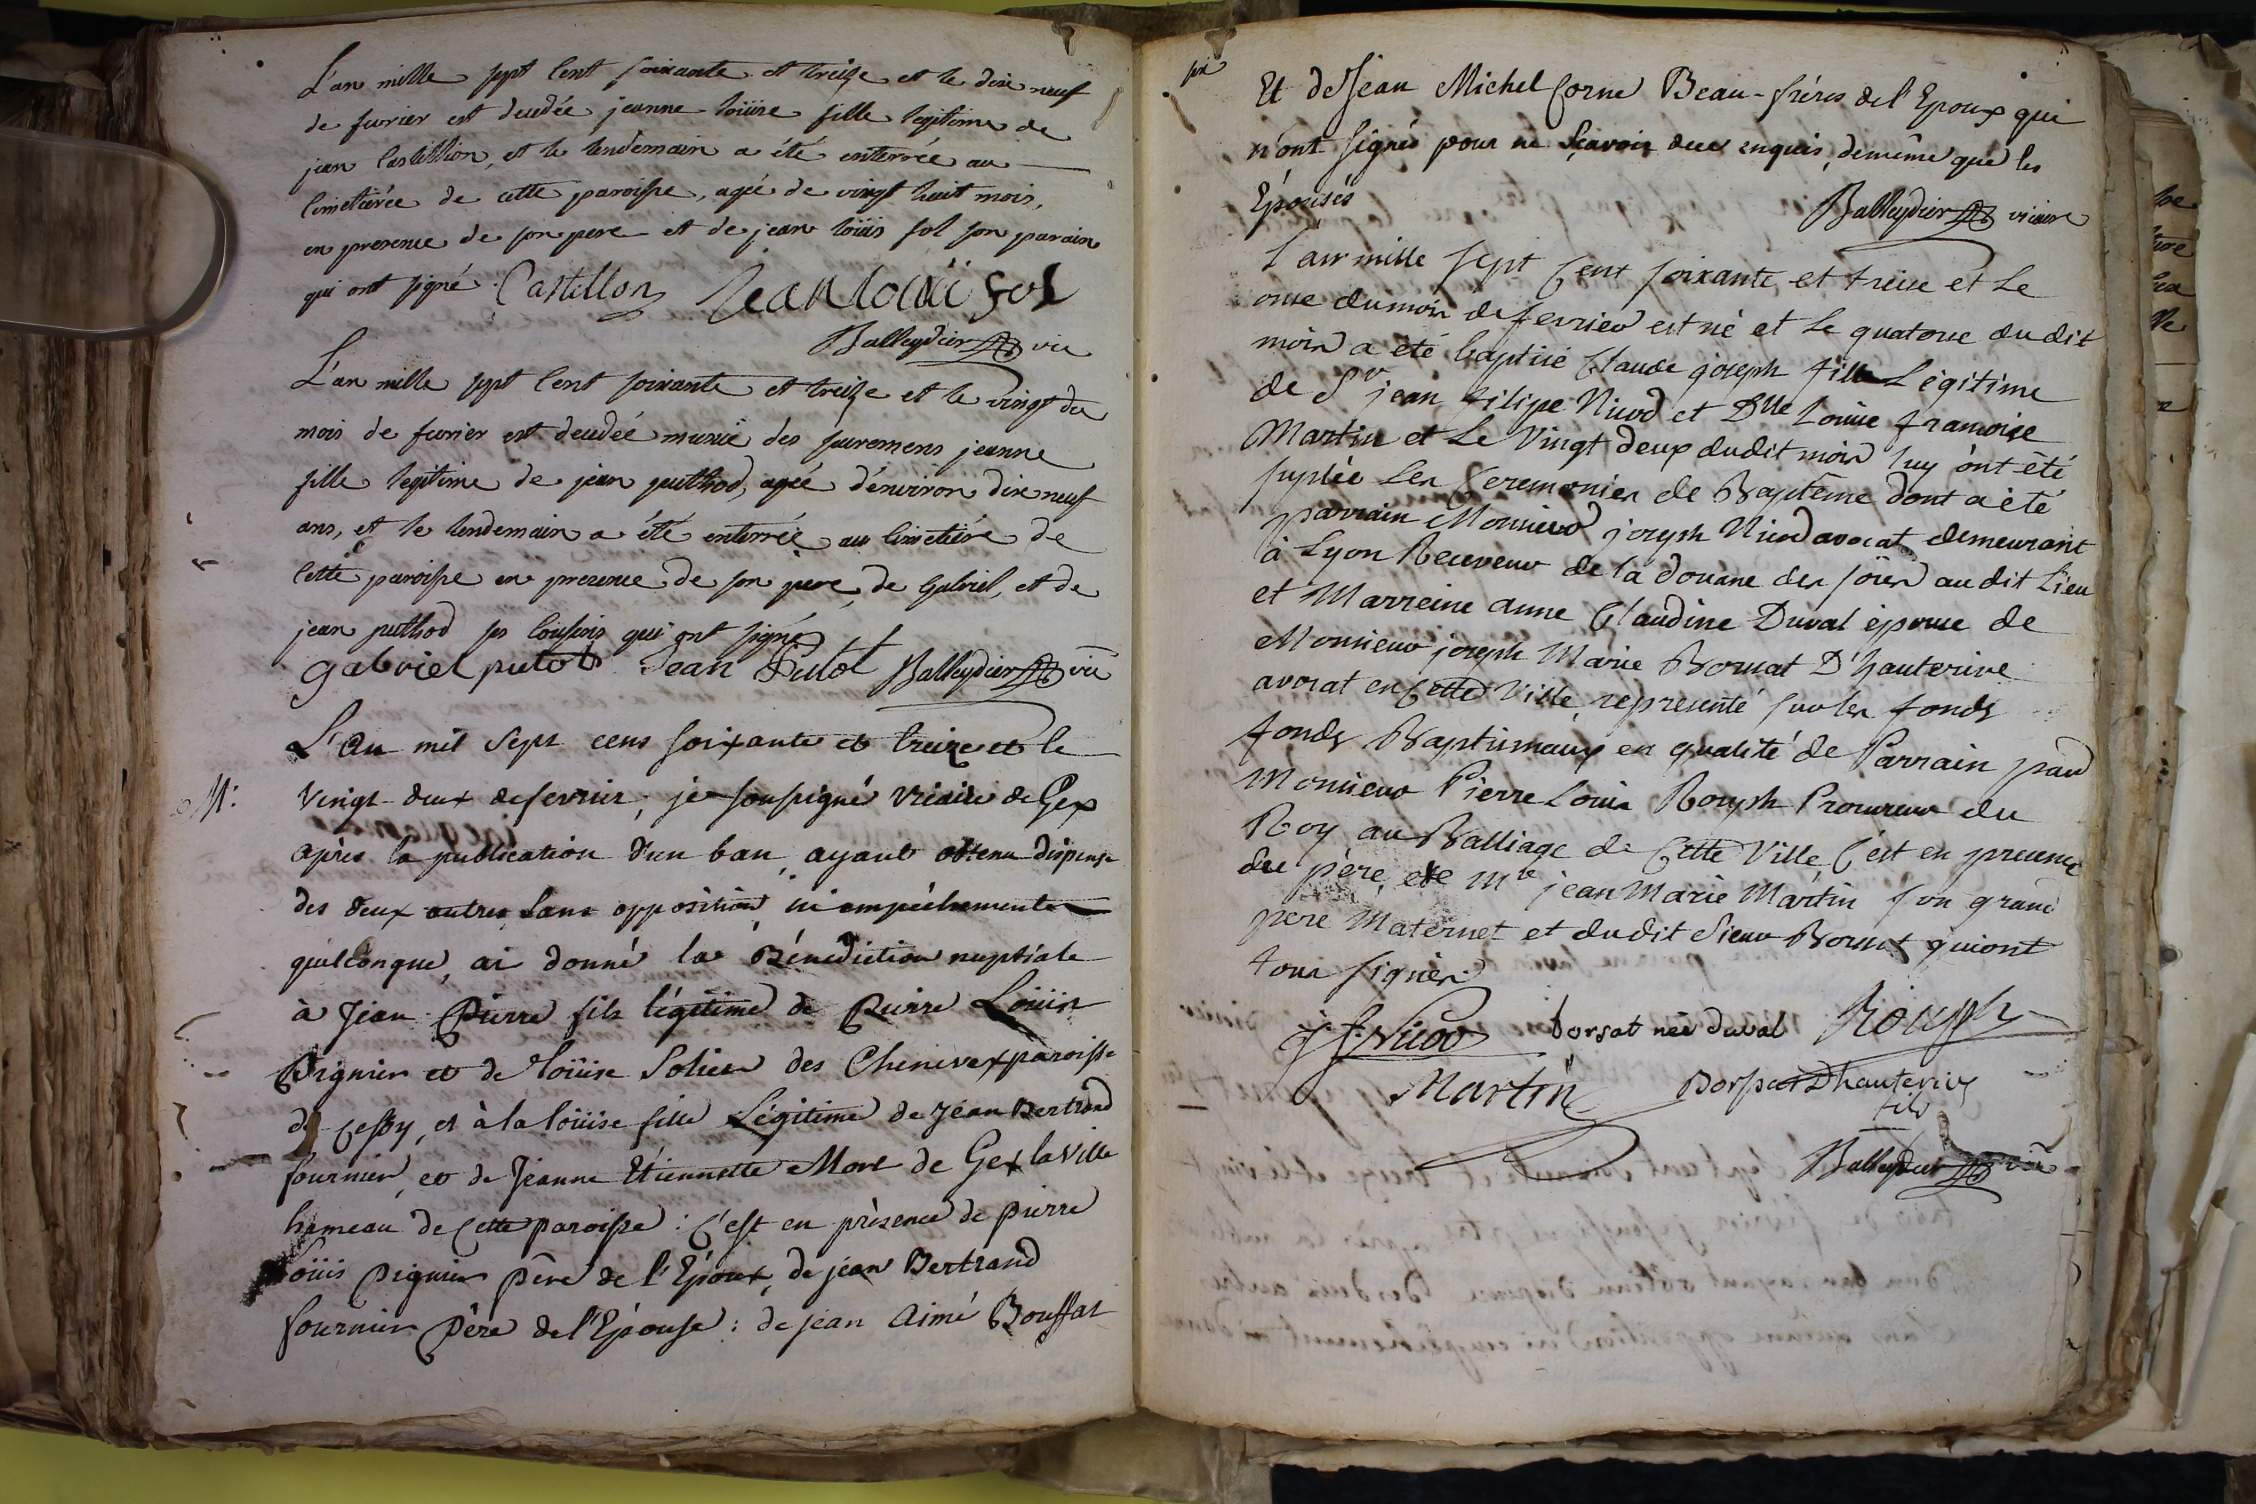 L'an mille sept cent soixante et treize et le dix neuf
de fevrier est decedée jeanne loüise fille legitime de
jean Castillion, et le lendemain a été enterrée au
cimetiérée de cette paroisse, agée de vingt huit mois,
en presence de son pere et de jean loüis sol son parain
qui ont signé. Castillon Jean louïi sol
Balleydier vic
L'an mille sept cent soixante et treize et le vingt du
mois de fevrier est decedée munie des sacremens jeanne
fille legitime de jean puthod, agée d'environ dix neuf
ans, et le lendemain a été enterrée au cimetiére de
cette paroisse en presence de son pere, de gabriel, et de
jean puthod ses cousins qui ont signé
gabriel putod Jean Putot Balleydier vic
M:
L'an mil sept cens soixante et treize et le
vingt-deux de fevrier, je soussigné vicaire de Gex
après la publication d'un ban, ayant obtenu dispense
des deux autres, sans opposition ni empêchement
quelconque, ai donné la Bénédiction nuptiale
à Jean Pierre fils légitime de Pierre Loüis
Pignier et de loüise Solier des Chenevex paroisse
de Cessy, et à la loüise fille Légitime de Jéan Bertrand
fournier, et de Jeanne Etiennette More de Gex la ville
hameau de cette paroisse : c'est en présence de pierre
loüis pignier père de l'Epoux, de jean Bertrand
fournier Père de l'Epouse : de jean Aimé Bouffat
Et de Jean Michel Corne Beau-fréres de l'Epoux qui
n'ont signés pour ne Sçavoir de ce enquis, de même que les
Epousés
Balleydier vicaire
L'an mille sept Cent soixante et treize et Le
onze du mois de fevrier est né et Le quatorze du dit
mois a été baptisé Claude joseph fille Légitime
de Sr jean filipe Nicod et Dlle Louise francoise
Martin et Le Vingt deux dudit mois luy ont été
suplée Les Ceremonies de Baptême dont a été
parrain Monsieur joseph Nicod avocat demeurant
à Lyon Receveur de la douane des soies au dit Lieu
et Marreine anne Claudine Duval épouse de
Monsieur joseph Marie Borssat D'hauterive
avocat en Cette Ville representé sur les fonds
fonds Baptismaux en qualité de Parrain par
Monsieur Pierre Louis Rouph Procureur du
Roy au Balliage de Cette Ville, C'est en presence
du père, de Mre jean Marie Martin son grand
pere Maternet et dudit Sieur Borsat qui ont
tous signés.
j f Nicod borsat née duval Rouph
Martin Borssat Dhauterive
fils
Balleydier vic